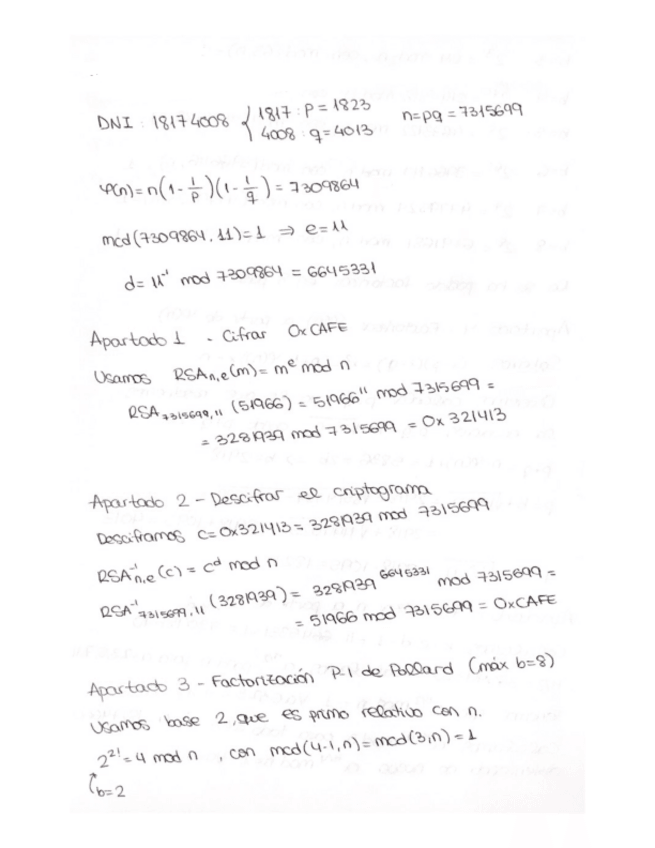 DNI : 18174008 { 1817 : p = 1823 n=pq = 7315699
4008 : q = 4013
φ(n) = n(1 - 1/p)(1 - 1/q) = 7309864
mcd(7309864, 11) = 1 ⇒ e = 11
d = 11⁻¹ mod 7309864 = 6645331
Apartado 1 - Cifrar 0xCAFE
Usamos RSAₙ,ₑ(m) = mᵉ mod n
RSA₇₃₁₅₆₉₉,₁₁ (51966) = 51966¹¹ mod 7315699 =
= 3281939 mod 7315699 = 0x 321413
Apartado 2 - Descifrar el criptograma
Desciframos c = 0x321413 = 3281939 mod 7315699
RSA⁻¹ₙ,ₑ(c) = cᵈ mod n
RSA⁻¹₇₃₁₅₆₉₉,₁₁ (3281939) = 3281939⁶⁶⁴⁵³³¹ mod 7315699 =
= 51966 mod 7315699 = 0xCAFE
Apartado 3 - Factorización P-1 de Pollard (máx b=8)
Usamos base 2, que es primo relativo con n.
2²! = 4 mod n , con mcd(4-1, n) = mcd(3, n) = 1
b=2